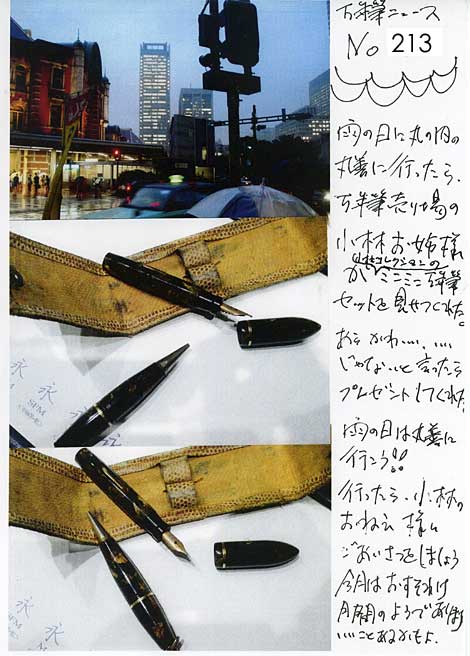 万年筆ニュース
No 213
雨の日に丸の内の
丸善に行ったら、
万年筆売り場の
小林お姉様
コレクションの
が ミニミニ万年筆
セットを見せてくれた。
かわ……
じゃない と言ったら
プレゼントしてくれた。
雨の日は丸善に
行こう!!
行ったら、小林の
おねえ様に
ごあいさつをしましょう
今月はおすそわけ
月間のようであります
いいことあるかもよ。
永
永
永